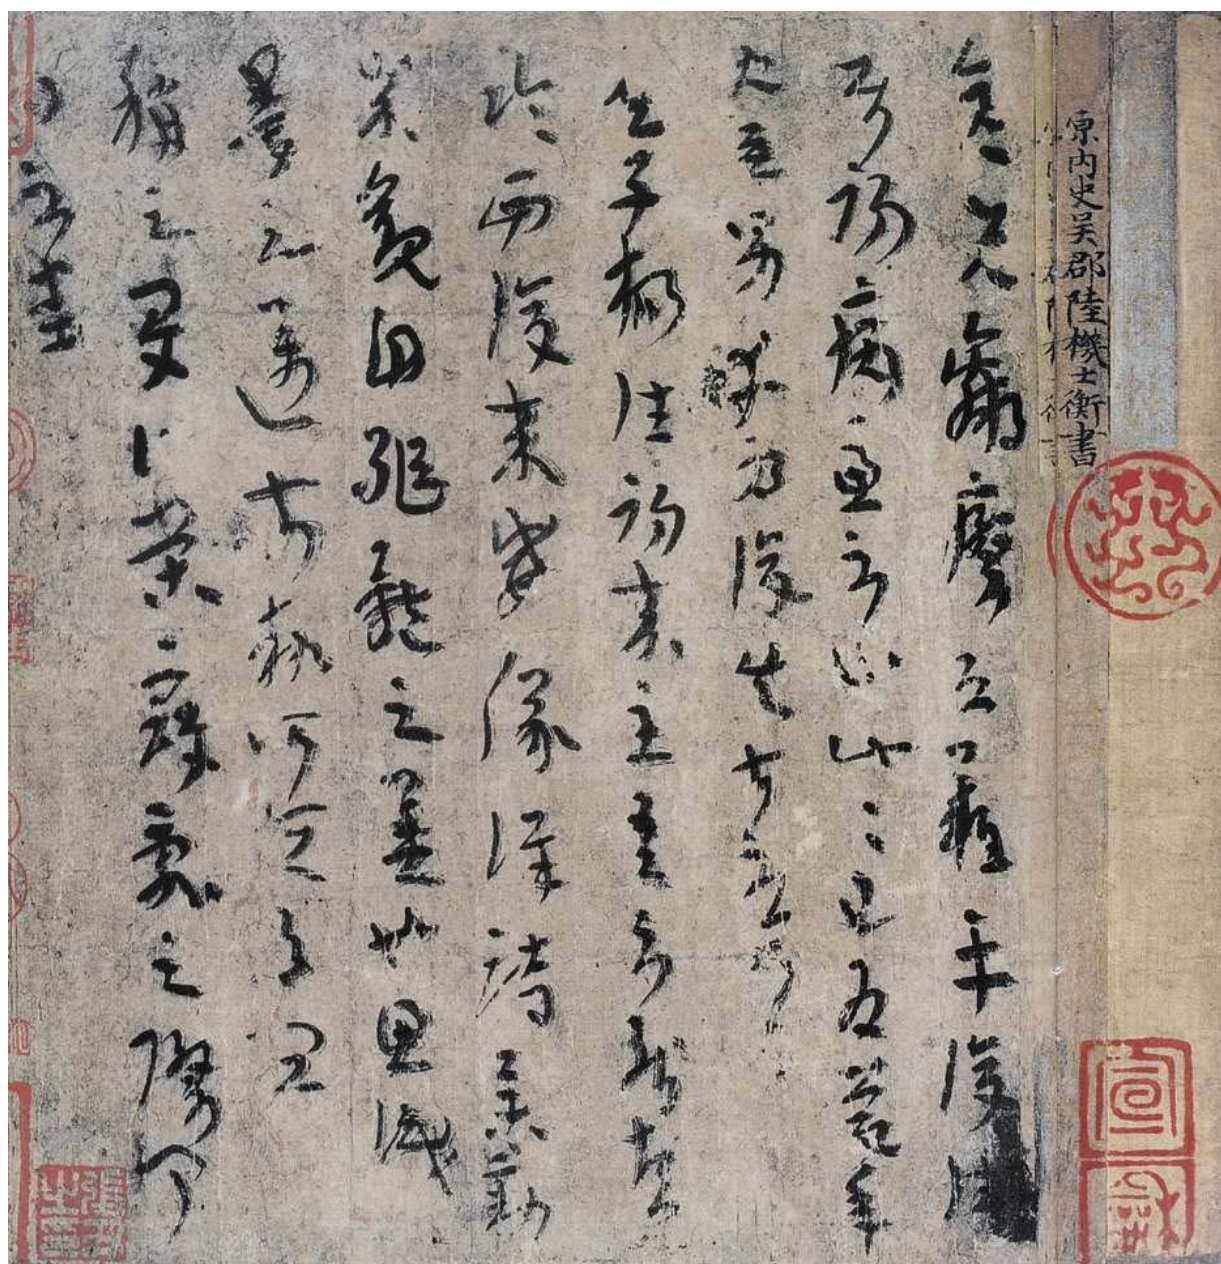 原內史吳郡陸機士衡書
彦先羸瘵恐難平復往
屬初病慮不止此此已為慶承
使唯男幸為復失前憂耳
吳子楊往初來主吾不能盡
臨西復來威儀詳跱舉動
成觀自軀體之美也思識
量之邁前執所恒有宜
稱之夏伯榮寇亂之際聞
問不悉
宣
龢